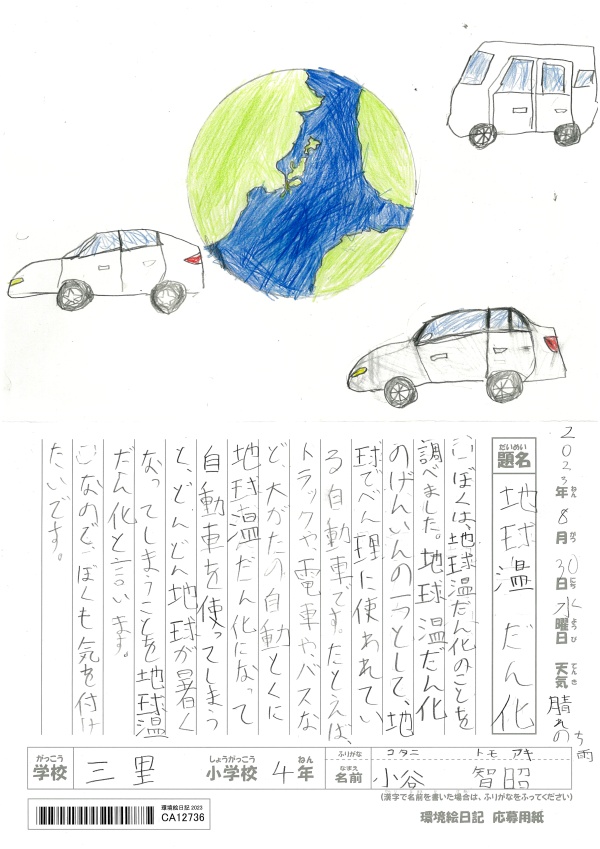 2023年8月30日水曜日 天気 晴れのち雨
ねん がつ にち ようび てんき
だいめい
題名
地球温だん化
ぼくは、地球温だん化のことを
調べました。地球温だん化
のげんいんの一つとして、地
球でべん理に使われてい
る自動車です。たとえば、
トラックや電車やバスな
ど、大がたの自動とくに
地球温だん化になって
自動車を使ってしまう
と、どんどん地球が暑く
なってしまうことを地球温
だん化と言います。
なので、ぼくも気を付け
たいです。
がっこう
学校
三里
しょうがっこう
小学校
4
ねん
年
ふりがな
コタニ トモアキ
なまえ
名前
小谷 智昭
(漢字で名前を書いた場合は、ふりがなをふってください)
環境絵日記 2023
CA12736
環境絵日記 応募用紙